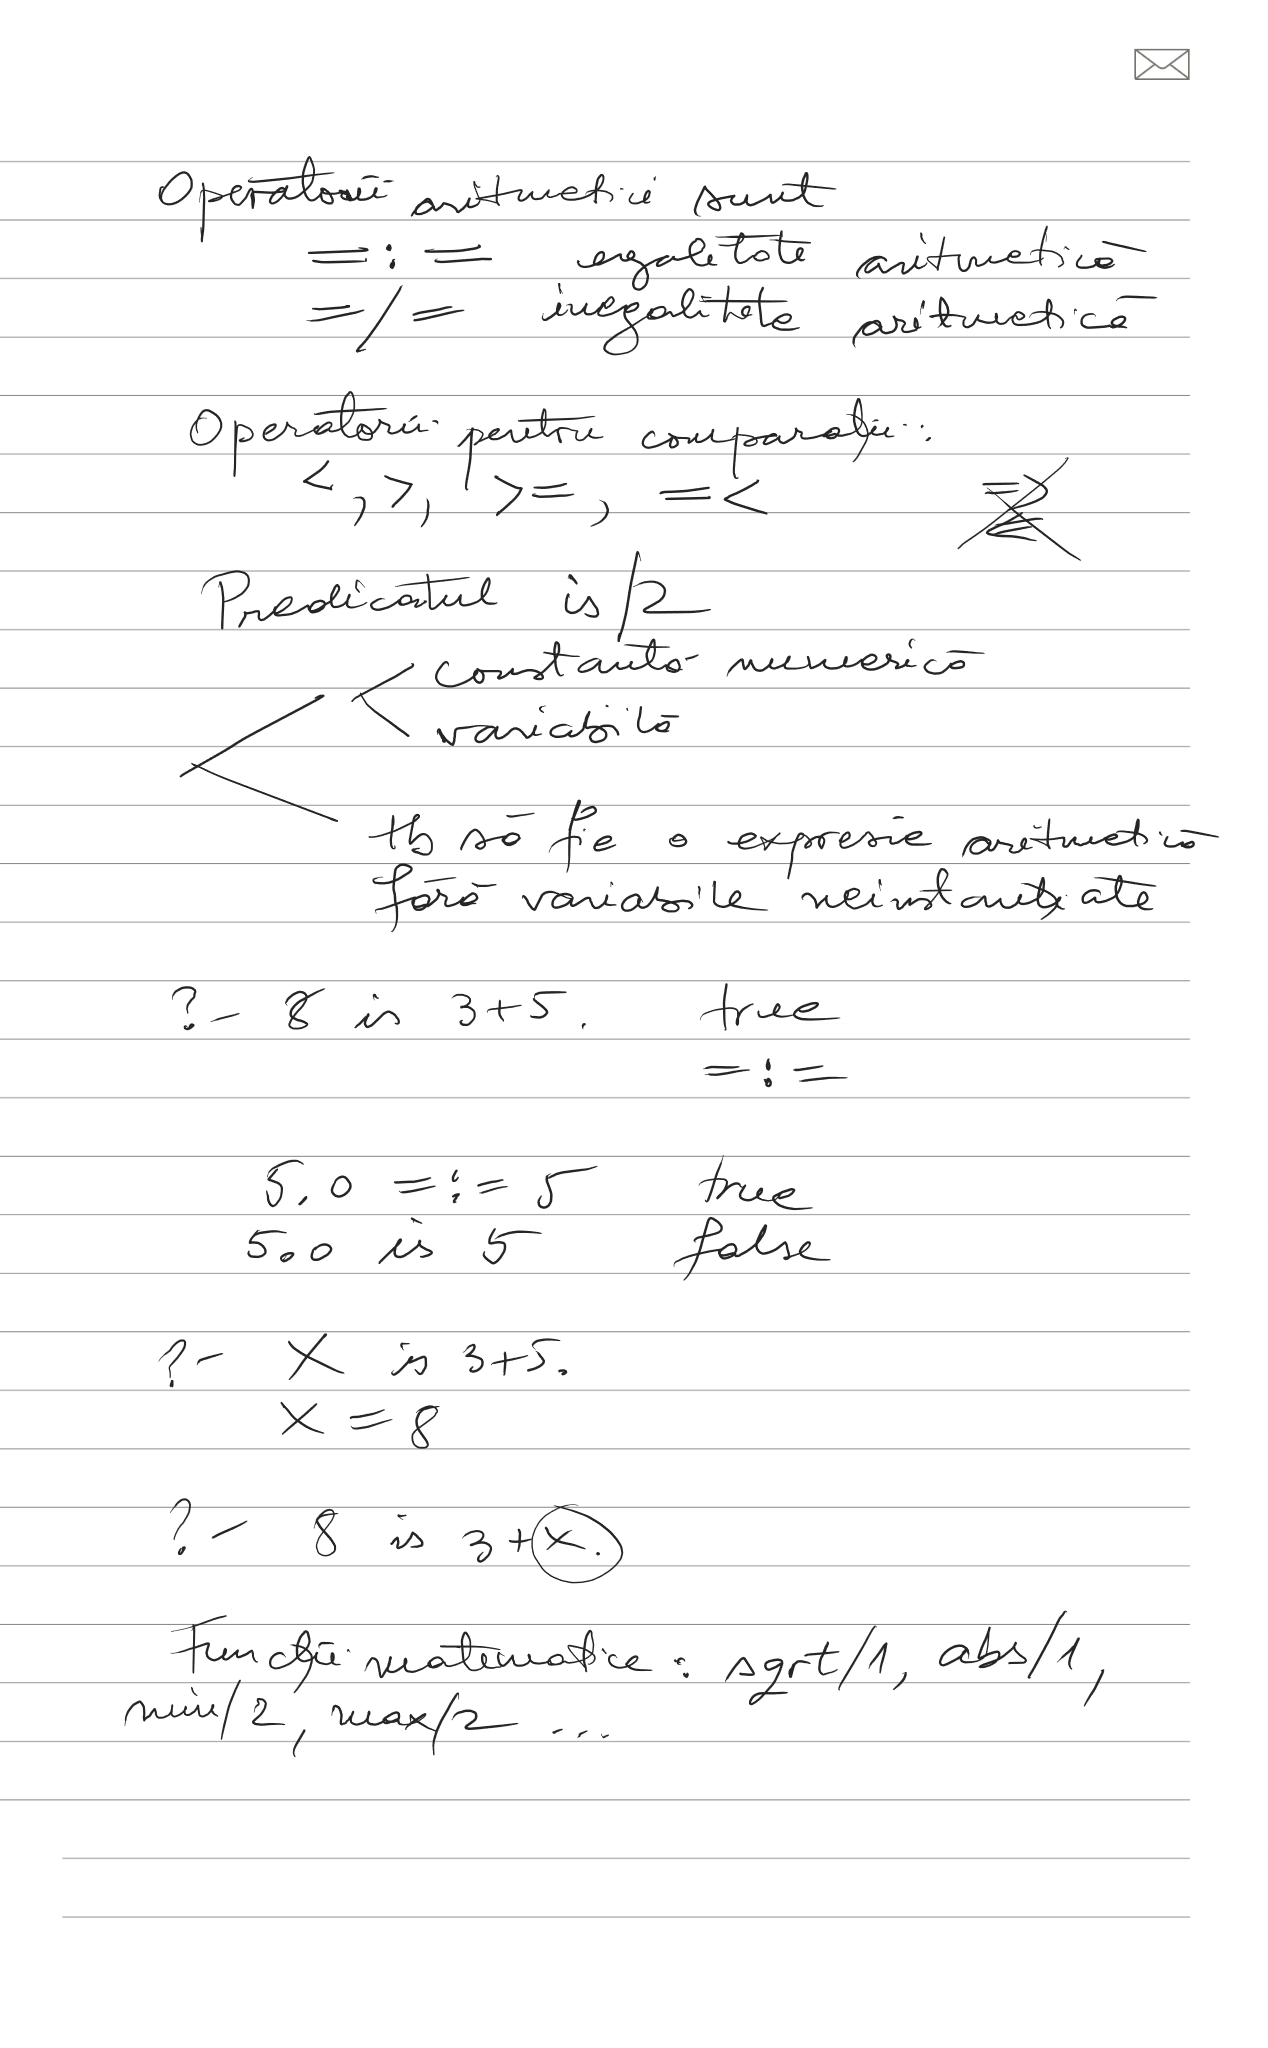 Operatorii aritmetici sunt
=:= egalitate aritmetică
=/= inegalitate aritmetică
Operatorii pentru comparații:
<, >, >=, =<
Predicatul is/2
constantă numerică
variabilă
tb să fie o expresie aritmetică
fără variabile neinstanțiate
?- 8 is 3+5. true
=:=
5.0 =:= 5 true
5.0 is 5 false
?- X is 3+5.
X = 8
?- 8 is 3+X.
Funcții matematice: sqrt/1, abs/1,
min/2, max/2 ...